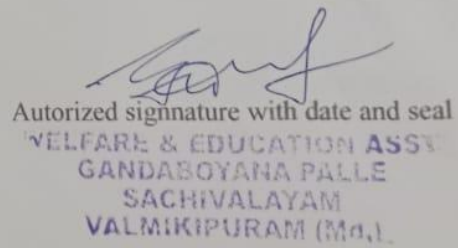 Autorized signnature with date and seal
WELFARE & EDUCATION ASST
GANDABOYANA PALLE
SACHIVALAYAM
VALMIKIPURAM (Md.)